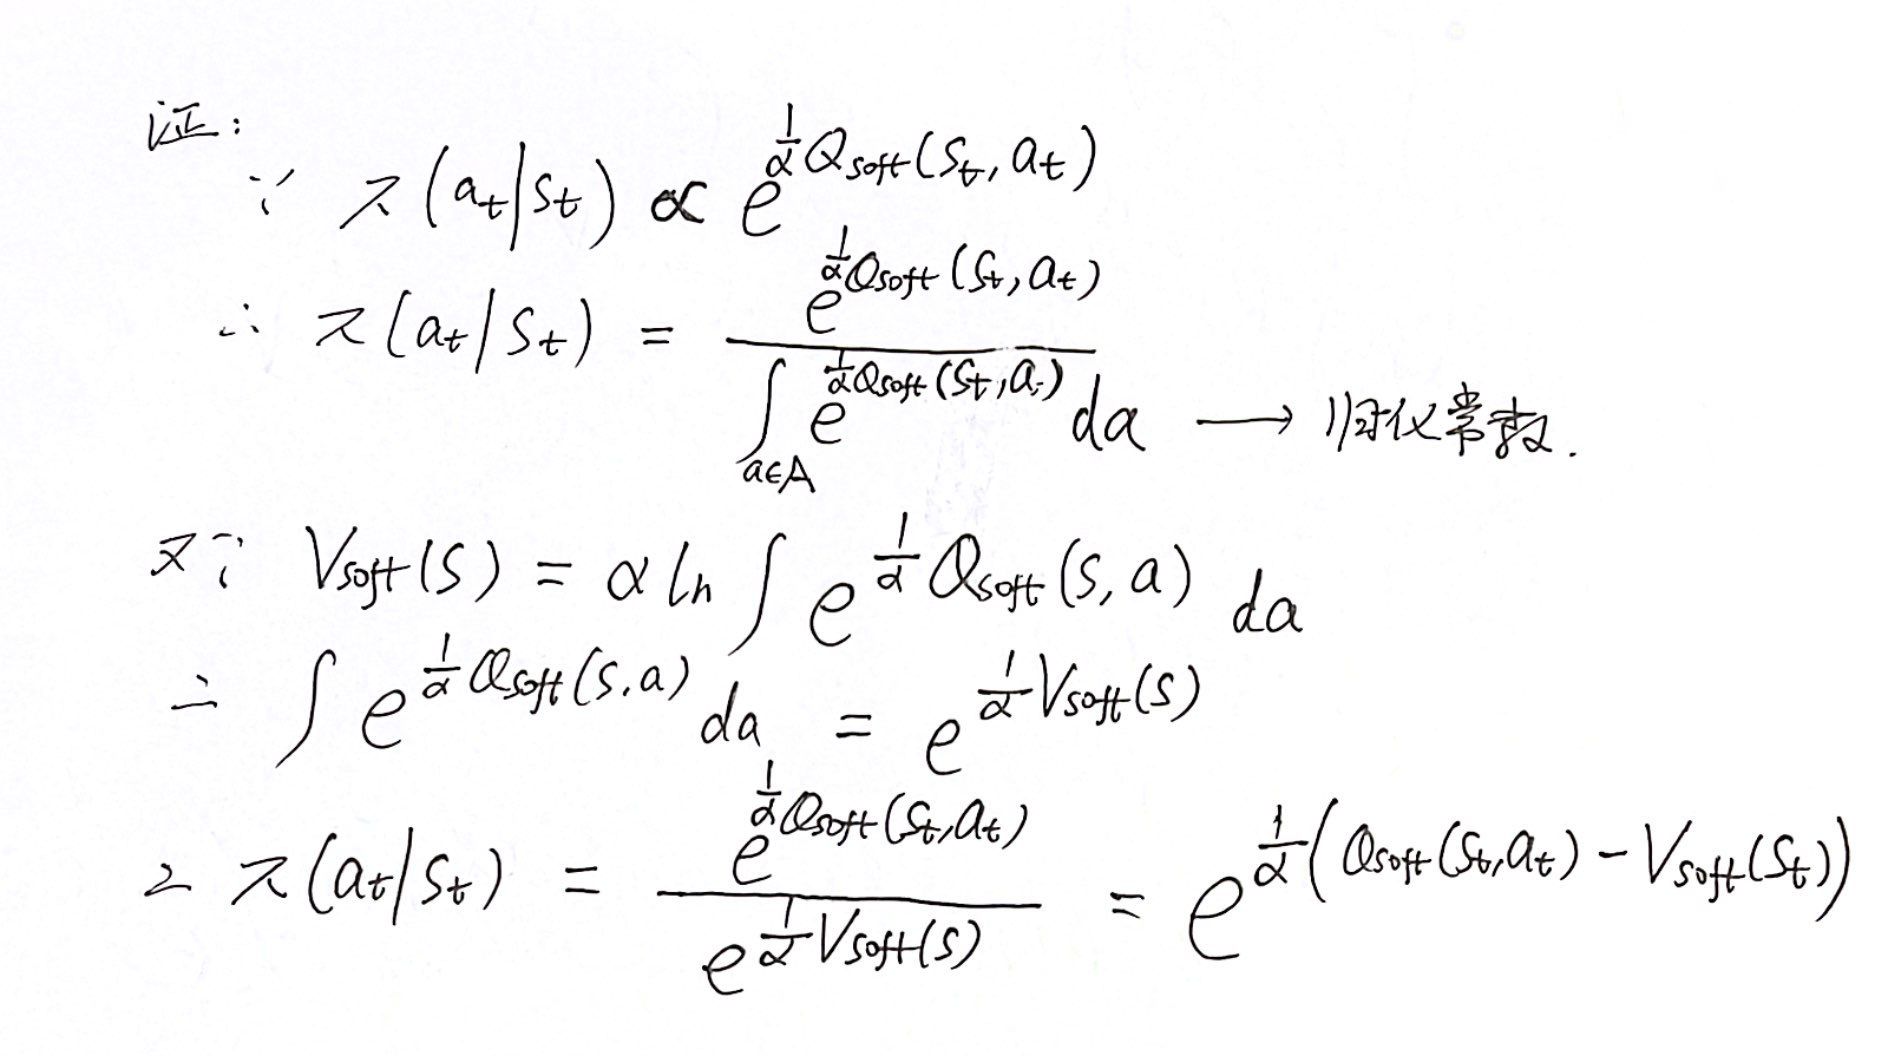 证:
∵ π(a_t|s_t) ∝ e^{\frac{1}{α}Q_{soft}(s_t, a_t)}
∴ π(a_t|s_t) = \frac{e^{\frac{1}{α}Q_{soft}(s_t, a_t)}}{\int_{a∈A} e^{\frac{1}{α}Q_{soft}(s_t, a_i)} da} → 归一化常数.
又∵ V_{soft}(s) = α ln ∫ e^{\frac{1}{α}Q_{soft}(s, a)} da
∴ ∫ e^{\frac{1}{α}Q_{soft}(s, a)} da = e^{\frac{1}{α}V_{soft}(s)}
∴ π(a_t|s_t) = \frac{e^{\frac{1}{α}Q_{soft}(s_t, a_t)}}{e^{\frac{1}{α}V_{soft}(s)}} = e^{\frac{1}{α}(Q_{soft}(s_t, a_t) - V_{soft}(s_t))}